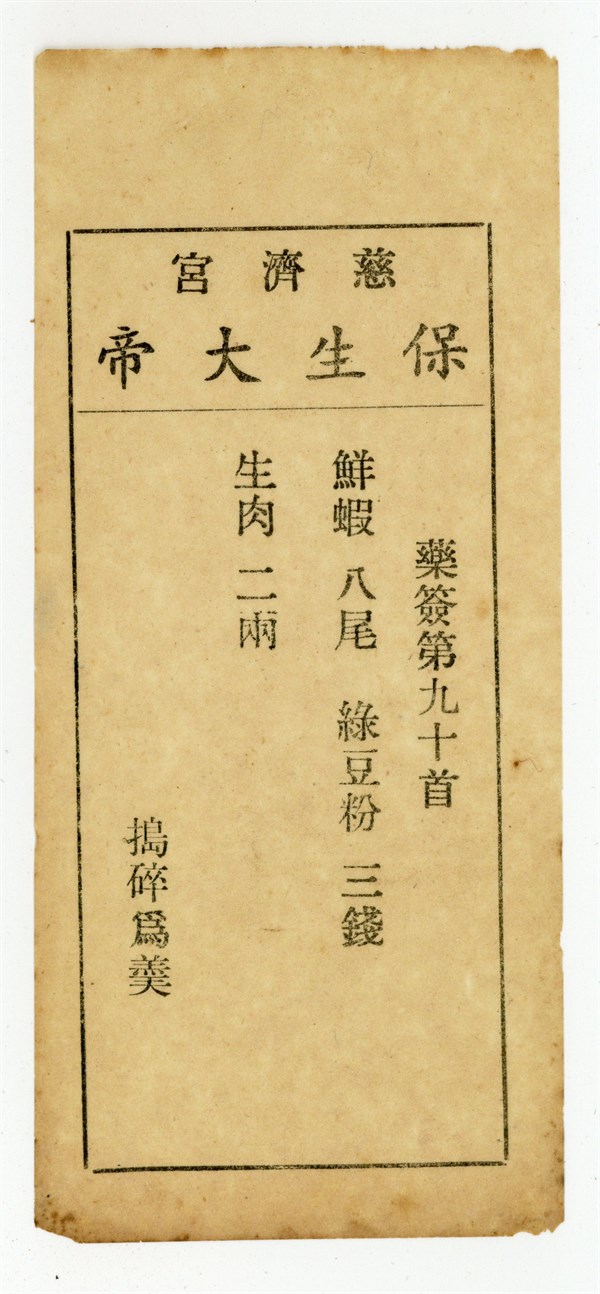 慈濟宮
保生大帝
藥簽第九十首
鮮蝦 八尾 綠豆粉 三錢
生肉 二兩
搗碎爲羹